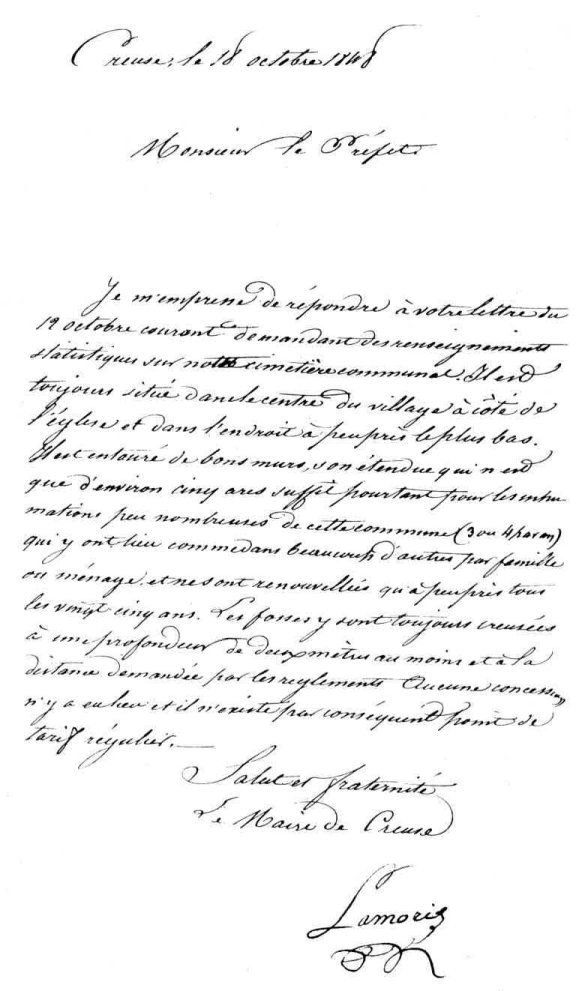 Creuse, le 18 octobre 1848
Monsieur le Préfet
Je m'emprene de répondre à votre lettre du
12 octobre courant demandant des renseignements
statistiques sur notre cimetière communal. Il est
toujours situé dans le centre du village à côté de
l'église et dans l'endroit à peu près le plus bas.
Il est entouré de bons murs, son étendue qui n'est
que d'environ cinq ares suffit pourtant pour les inhu
mations peu nombreuses de cette commune (3 ou 4 par an)
qui y ont lieu comme dans beaucoup d'autres par famille
ou ménage, et ne sont renouvellées qu'à peu près tous
les vingt cinq ans. Les fosses y sont toujours creusées
à une profondeur de deux mètres au moins et à la
distance demandée par les reglements Aucune concession
n'y a eu lieu et il n'existe par conséquent point de
tarif régulier.
Salut et fraternité
Le Maire de Creuse